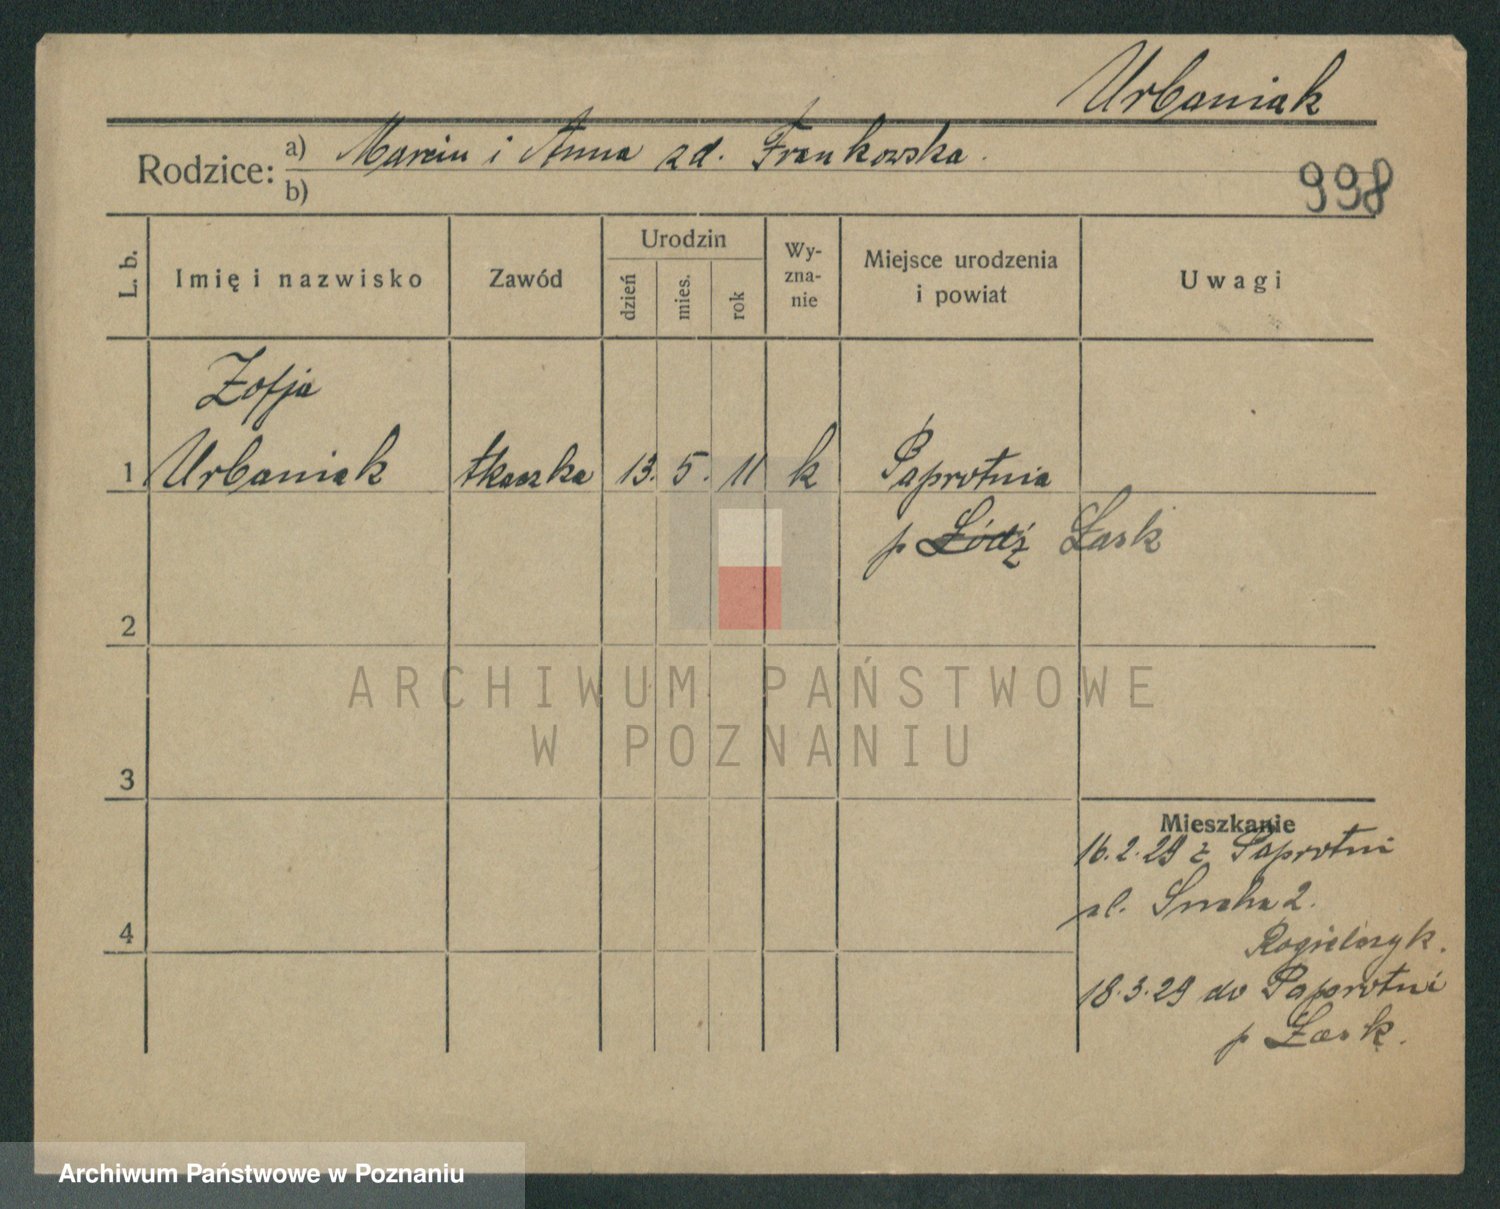 Urbaniak
Rodzice: a) Marcin i Anna zd. Frankowska.
b)
998
L. b.
Imię i nazwisko
Zawód
Urodzin
dzień
mies.
rok
Wy-
zna-
nie
Miejsce urodzenia
i powiat
Uwagi
Zofja
1 Urbaniak tkaczka 13. 5. 11 k Paprotnia
p Łódź Łask
2
ARCHIWUM PAŃSTWOWE
W POZNANIU
3
Mieszkanie
16.2.29 z Paprotni
ul. 2.
4
18.3.29 do Paprotni
p Łask.
Archiwum Państwowe w Poznaniu